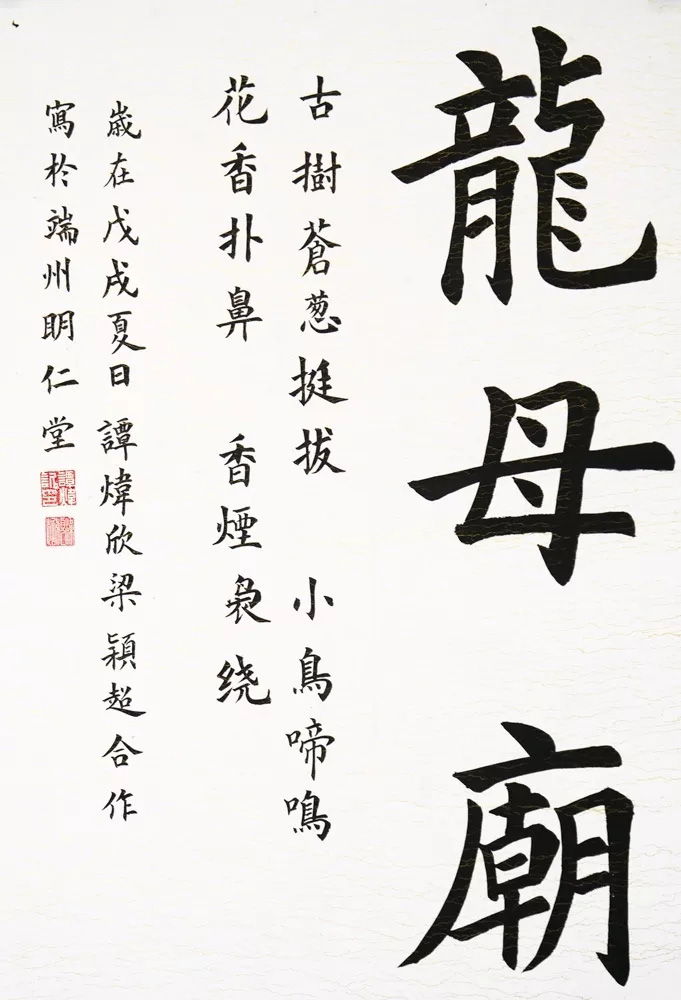 龍母廟
古樹蒼葱挺拔 小鳥啼鳴
花香扑鼻 香煙袅绕
歲在戊戌夏日譚煒欣梁穎超合作
寫於端州明仁堂